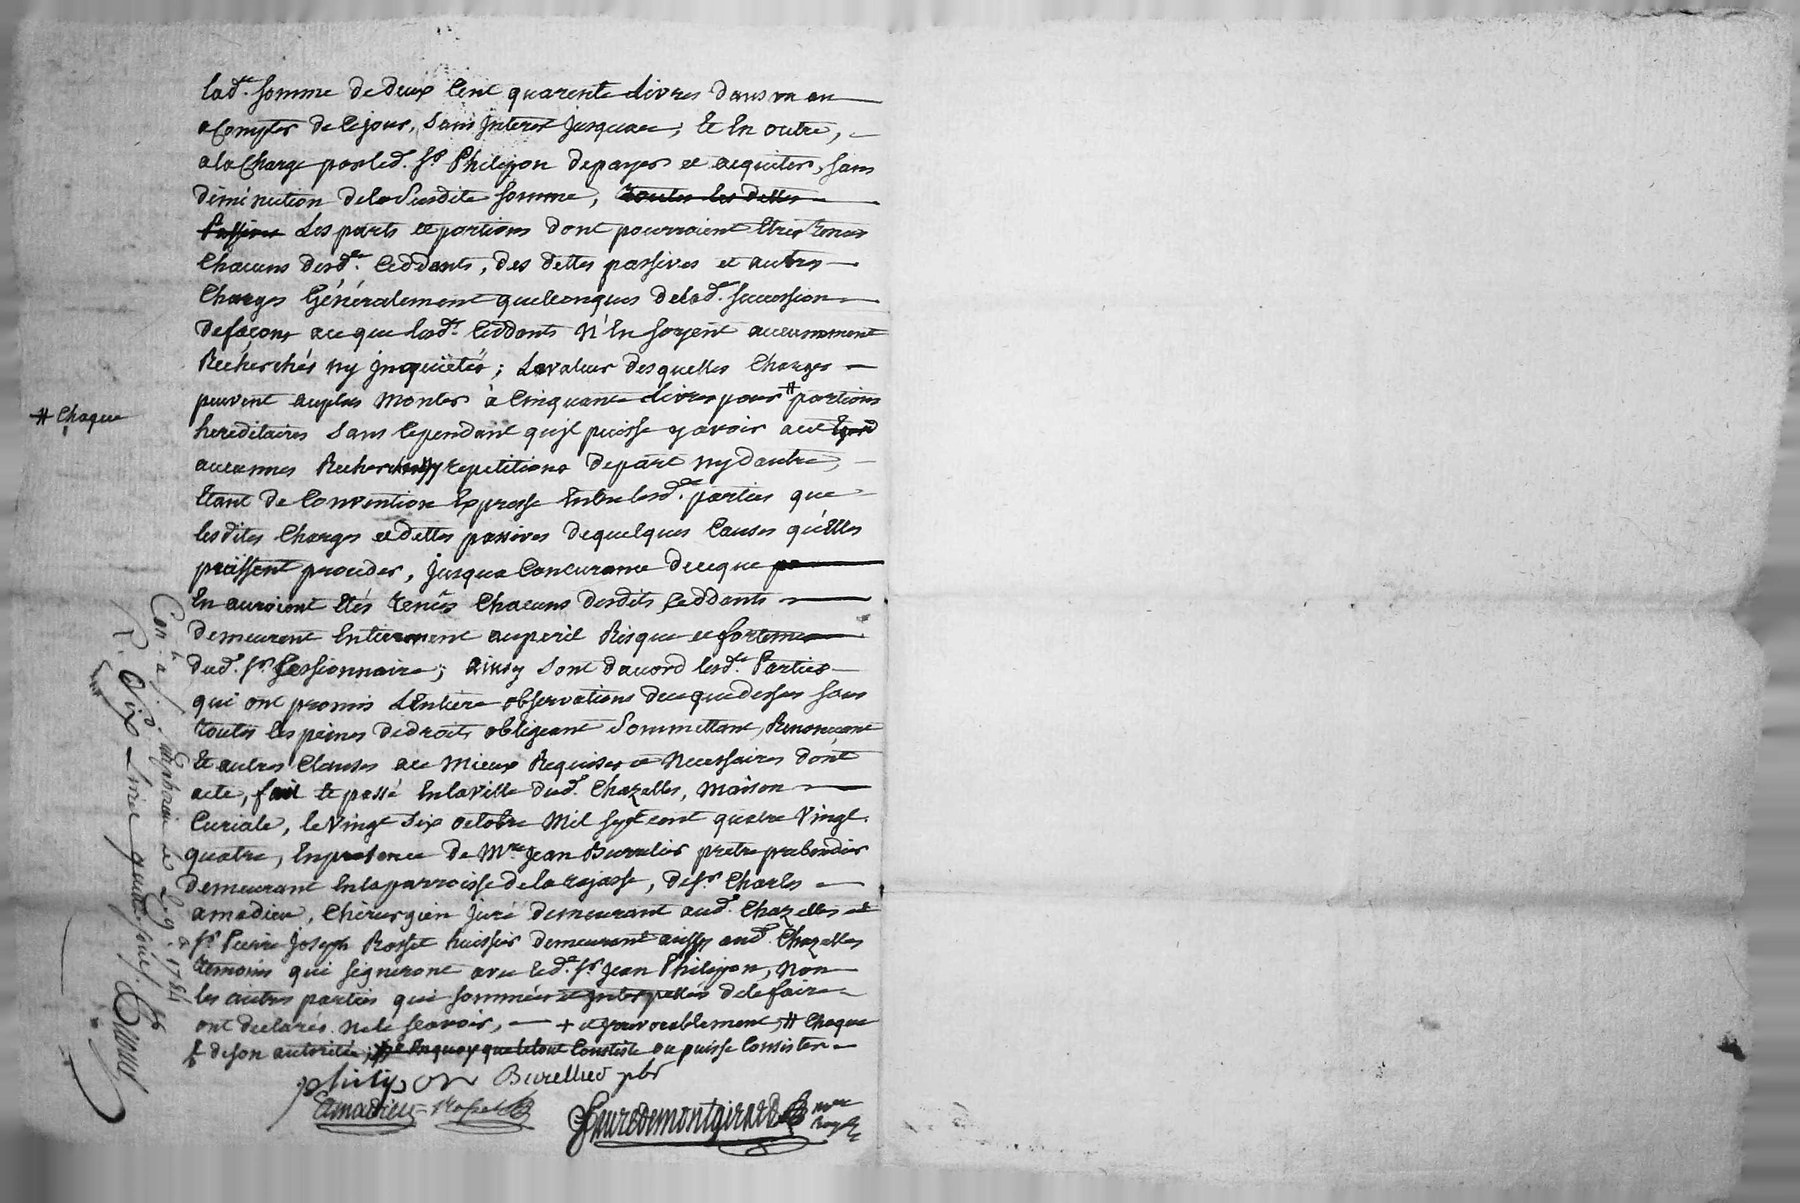 lad.e somme de deux Cent quarente livres dans un an
a Compter de Ce jour, sans jnterest jusquace; Et En outre,
a la Charge par led. Sr. Philippon de payer et acquiter, sans
diminution de la susdite somme, toutes les dettes
Passives Les parts et portions dont pourroient Etres tenus
Chacuns desd.ts Ceddants, des dettes passives et autres
Charges Généralement quelconques de lad. succession
de façons ace que lesd.ts Ceddants N'En soyent aucunement
Recherchés ny jnquiétés; La valeur desquelles Charges
peuvent auplus Monter à Cinquante livres pour # portions
# Chaque
hereditaires sans Cependant qu'jl puisse y avoir acet Egard
aucunes Recherches ny repetitions de part ny dautre,
Etant de Convention Expresse Entre lesd.es parties que
lesdites Charges et dettes passives de quelques Causes qu'Elles
puissent proceder, jusqua Concurance de ce que
En auroient Etés tenus Chacuns desdits Ceddants
demeurent Entierement au peril Risque et fortune
dud. Sr. Cessionnaire; ainsy sont daccord lesd.es Parties
qui ont promis L'Entiere observations de ce que dessus sans
toutes les peines de droits obligeant Soumettant, Renonceant
Et autres Clauses au Mieux Requises et Necessaires dont
acte, fait Et passé En la ville dud. Chazelles, Maison
Curiale, le Vingt Six octobre Mil sept cent quatre Vingt
quatre, En presence de Mre Jean Burrelier pretre prebendier
demeurant En la parroisse de la rajasse, de Sr. Charles
amadieu, Chirurgien juré demeurant aud. Chazelles et
Sr. Pierre Joseph Rosset huissier demeurant aussy aud. Chazelles
temoins qui signeront avec led. Sr. Jean Philippon, Non
les autres parties qui sommées et jnterpellés de le faire
ont declarés ne le scavoir, + et jrrevocablement, # Chaque
de son autorité; En quoy que le tout Consiste ou puisse Consister
philippon Burellier pbr
Amadieu Rosset
Fauredemontgirard
Con.lé a
le 29. 8 1784
R. Dix Livres